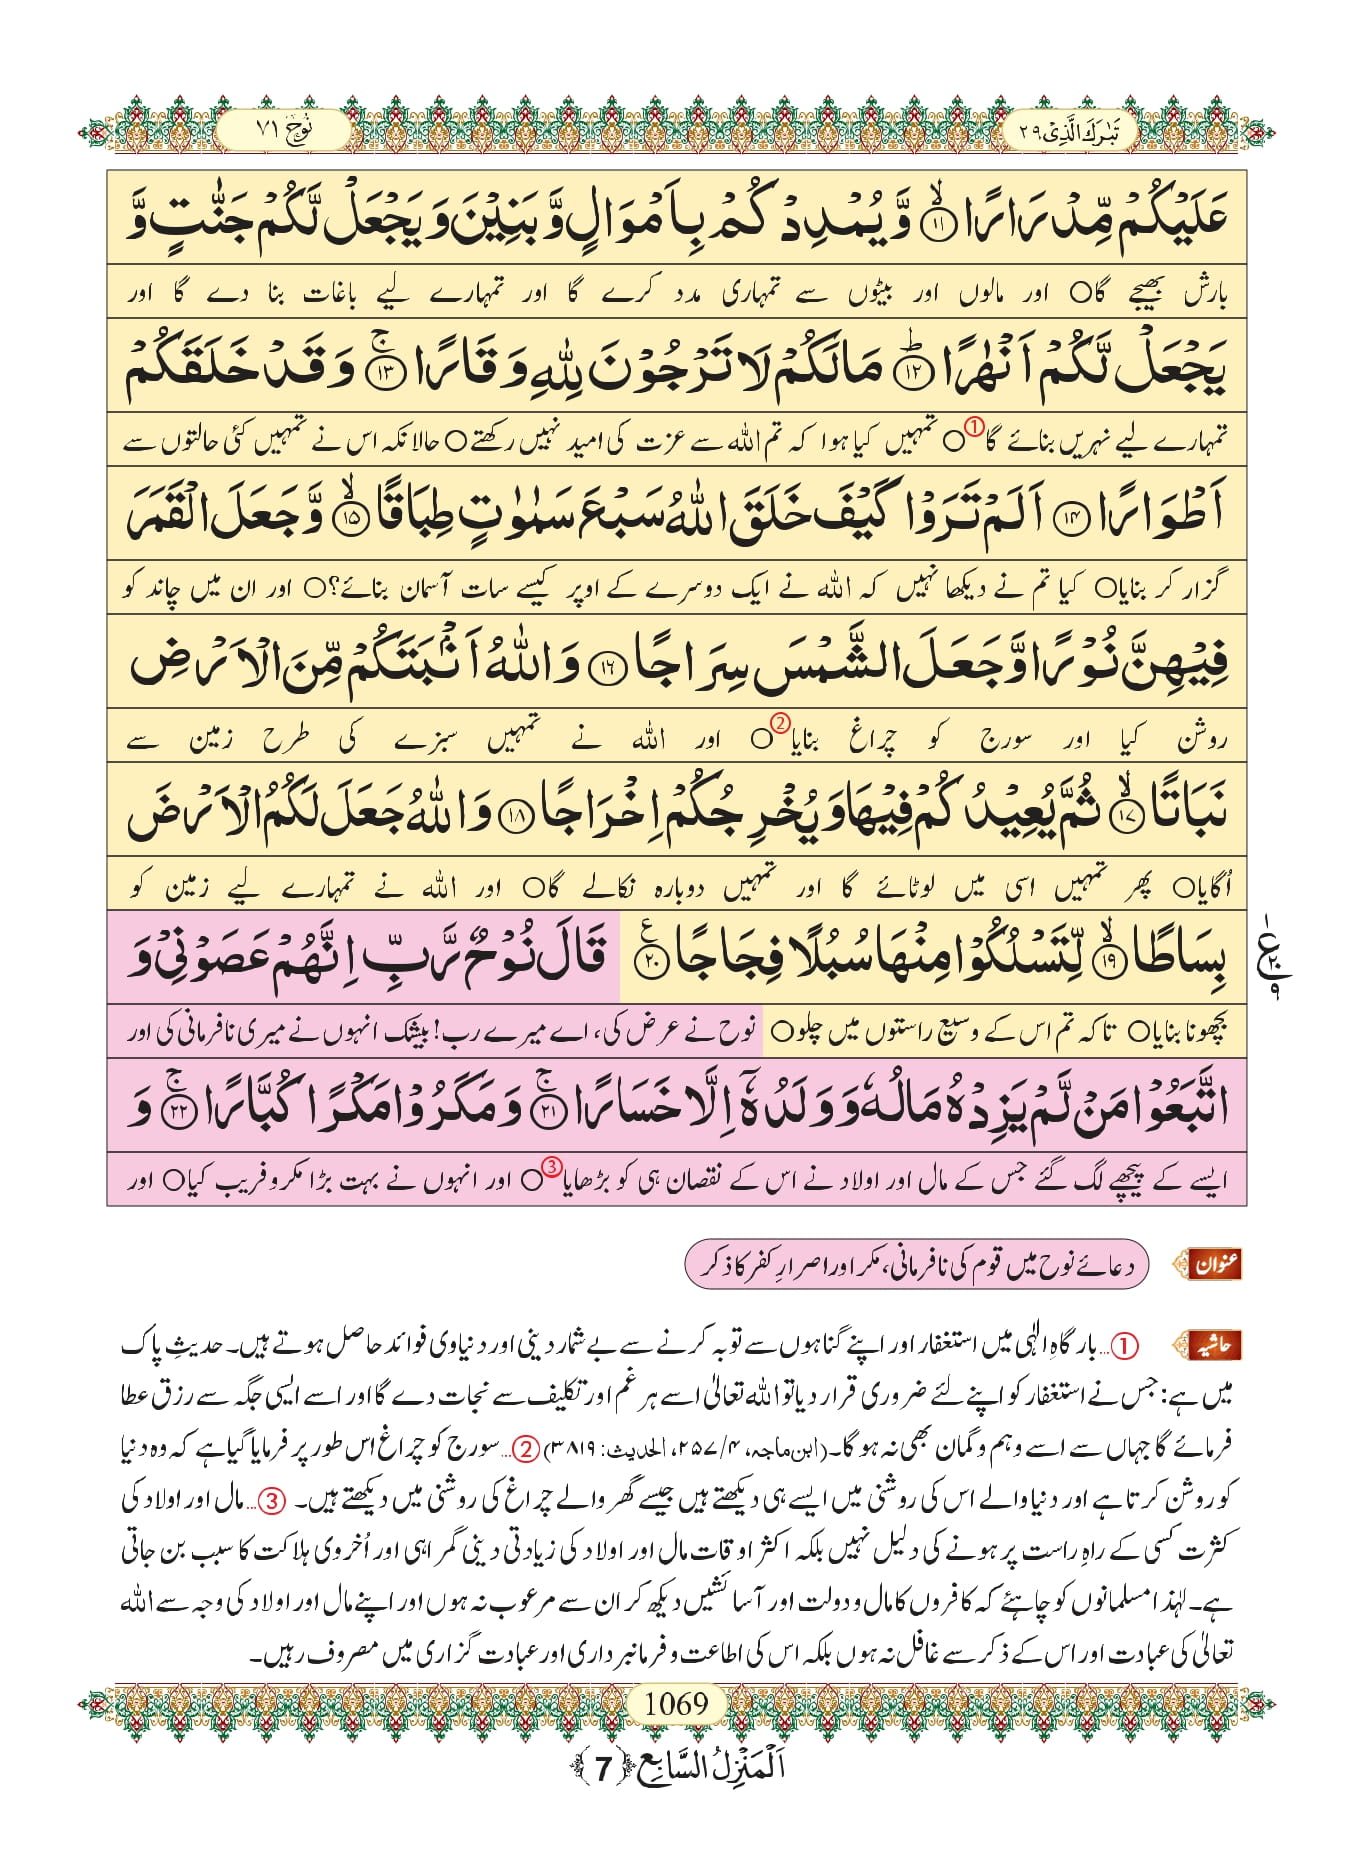 تَبٰرَكَ الَّذِیْ ۲۹
نُوْح ۷۱
عَلَیْكُمْ مِّدْرَارًاۙ۝۱۱ وَّ یُمْدِدْكُمْ بِاَمْوَالٍ وَّ بَنِیْنَ وَ یَجْعَلْ لَّكُمْ جَنّٰتٍ وَّ
بارش بھیجے گا○ اور مالوں اور بیٹوں سے تمہاری مدد کرے گا اور تمہارے لیے باغات بنا دے گا اور
یَجْعَلْ لَّكُمْ اَنْهٰرًاؕ۝۱۲ مَا لَكُمْ لَا تَرْجُوْنَ لِلّٰهِ وَقَارًاۚ۝۱۳ وَ قَدْ خَلَقَكُمْ
تمہارے لیے نہریں بنائے گا①○ تمہیں کیا ہوا کہ تم اللہ سے عزت کی امید نہیں رکھتے○ حالانکہ اس نے تمہیں کئی حالتوں سے
اَطْوَارًا۝۱۴ اَلَمْ تَرَوْا كَیْفَ خَلَقَ اللّٰهُ سَبْعَ سَمٰوٰتٍ طِبَاقًاۙ۝۱۵ وَّ جَعَلَ الْقَمَرَ
گزار کر بنایا○ کیا تم نے دیکھا نہیں کہ اللہ نے ایک دوسرے کے اوپر کیسے سات آسمان بنائے؟○ اور ان میں چاند کو
فِیْهِنَّ نُوْرًا وَّ جَعَلَ الشَّمْسَ سِرَاجًا۝۱۶ وَ اللّٰهُ اَنْۢبَتَكُمْ مِّنَ الْاَرْضِ
روشن کیا اور سورج کو چراغ بنایا②○ اور اللہ نے تمہیں سبزے کی طرح زمین سے
نَبَاتًاۙ۝۱۷ ثُمَّ یُعِیْدُكُمْ فِیْهَا وَ یُخْرِجُكُمْ اِخْرَاجًا۝۱۸ وَ اللّٰهُ جَعَلَ لَكُمُ الْاَرْضَ
اُگایا○ پھر تمہیں اسی میں لوٹائے گا اور تمہیں دوبارہ نکالے گا○ اور اللہ نے تمہارے لیے زمین کو
بِسَاطًاۙ۝۱۹ لِّتَسْلُكُوْا مِنْهَا سُبُلًا فِجَاجًا۠۝۲۰ قَالَ نُوْحٌ رَّبِّ اِنَّهُمْ عَصَوْنِیْ وَ
بچھونا بنایا○ تاکہ تم اس کے وسیع راستوں میں چلو○ نوح نے عرض کی، اے میرے رب! بیشک انہوں نے میری نافرمانی کی اور
اتَّبَعُوْا مَنْ لَّمْ یَزِدْهُ مَالُهٗ وَ وَلَدُهٗۤ اِلَّا خَسَارًاۚ۝۲۱ وَ مَكَرُوْا مَكْرًا كُبَّارًاۚ۝۲۲ وَ
ایسے کے پیچھے لگ گئے جس کے مال اور اولاد نے اس کے نقصان ہی کو بڑھایا③○ اور انہوں نے بہت بڑا مکر و فریب کیا○ اور
عنوان دعائے نوح میں قوم کی نافرمانی، مکر اور اصرارِ کفر کا ذکر
حاشیہ ①…بارگاہِ الٰہی میں استغفار اور اپنے گناہوں سے توبہ کرنے سے بے شمار دینی اور دنیاوی فوائد حاصل ہوتے ہیں۔ حدیثِ پاک
میں ہے: جس نے استغفار کو اپنے لئے ضروری قرار دیا تو اللہ تعالیٰ اسے ہر غم اور تکلیف سے نجات دے گا اور اسے ایسی جگہ سے رزق عطا
فرمائے گا جہاں سے اسے وہم و گمان بھی نہ ہو گا۔ (ابن ماجہ، ۴/۲۵۷، الحدیث: ۳۸۱۹) ②…سورج کو چراغ اس طور پر فرمایا گیا ہے کہ وہ دنیا
کو روشن کرتا ہے اور دنیا والے اس کی روشنی میں ایسے ہی دیکھتے ہیں جیسے گھر والے چراغ کی روشنی میں دیکھتے ہیں۔ ③…مال اور اولاد کی
کثرت کسی کے راہِ راست پر ہونے کی دلیل نہیں بلکہ اکثر اوقات مال اور اولاد کی زیادتی دینی گمراہی اور اُخروی ہلاکت کا سبب بن جاتی
ہے۔ لہٰذا مسلمانوں کو چاہئے کہ کافروں کا مال و دولت اور آسائشیں دیکھ کر ان سے مرعوب نہ ہوں اور اپنے مال اور اولاد کی وجہ سے اللہ
تعالیٰ کی عبادت اور اس کے ذکر سے غافل نہ ہوں بلکہ اس کی اطاعت و فرمانبرداری اور عبادت گزاری میں مصروف رہیں۔
1069
اَلْمَنْزِلُ السَّابِع ﴿7﴾